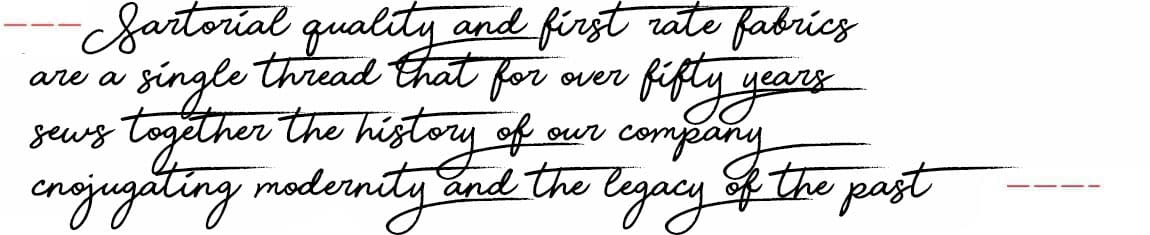 Sartorial quality and first rate fabrics
are a single thread that for over fifty years
sews together the history of our company
cnojugating modernity and the legacy of the past